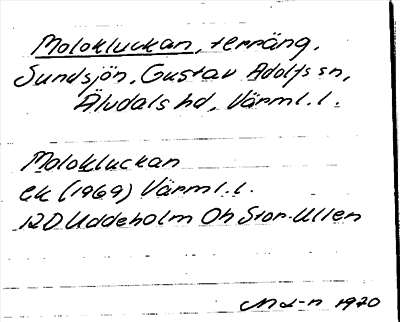 Molokluckan, terräng.
Sundsjön, Gustav Adolfs sn,
Älvdals hd, Värml. l.
Molokluckan
ek (1969) Värml. l.
12D Uddeholm Öh Stor-Ullen
1970